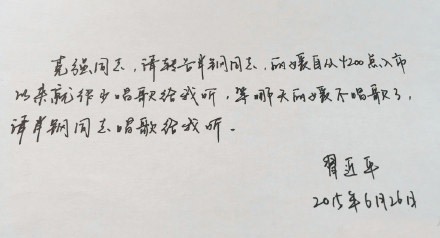 克强同志，请转告岸钢同志，丽媛自从4200点入市
以来就很少唱歌给我听，等哪天丽媛不唱歌了，
请岸钢同志唱歌给我听。
习近平
2015年6月26日